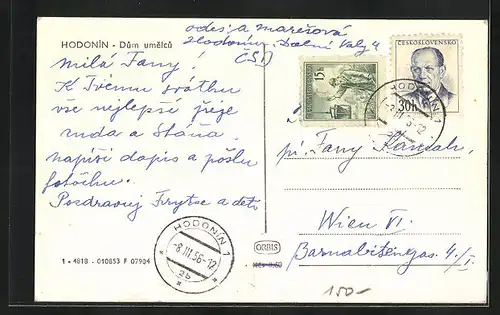 odes. a marešová
Hodonín, Dolní Valy 4
ČSR
HODONÍN - Dům umělců
Milá Fany!
K Tvému svátku
vše nejlepší přeje
Ruda a Stáňa.
napíši dopis a pošlu
fotečku.
Pozdravuj Frytze a děti
ČESKOSLOVENSKO
15h
30h
HODONÍN 1
-8.III.56-12
2b
HODONÍN 1
-8.III.56-12
2b
pí. Fany
Wien VI.
Barnabitengas. 4/I.
ORBIS
1 - 4818 - 010853 F 07904
150-